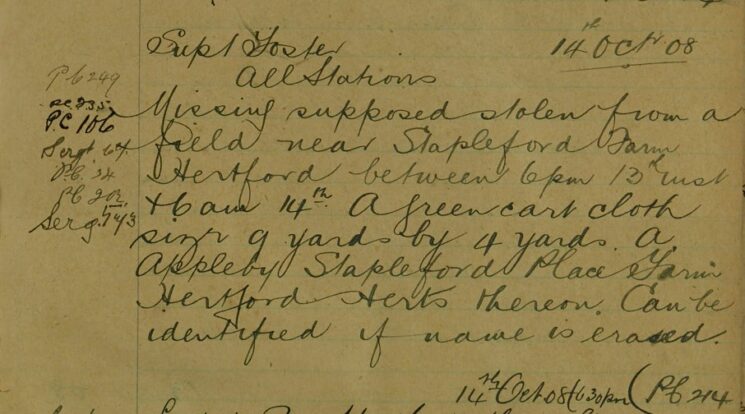 Supt Foster 14th Octr 08
All Stations
PC 249
PC 235
PC 106
Sergt. 67
PC. 24
PC 202
Serg. 143
Missing supposed stolen from a
field near Stapleford Farm
Hertford between 6pm 13th inst
+ 6 am 14th. A Green cart cloth
size 9 yards by 4 yards. A.
Appleby Stapleford Place Farm
Hertford Herts thereon. Can be
identified if name is erased.
14th Oct 08 (6 30pm (PC 214